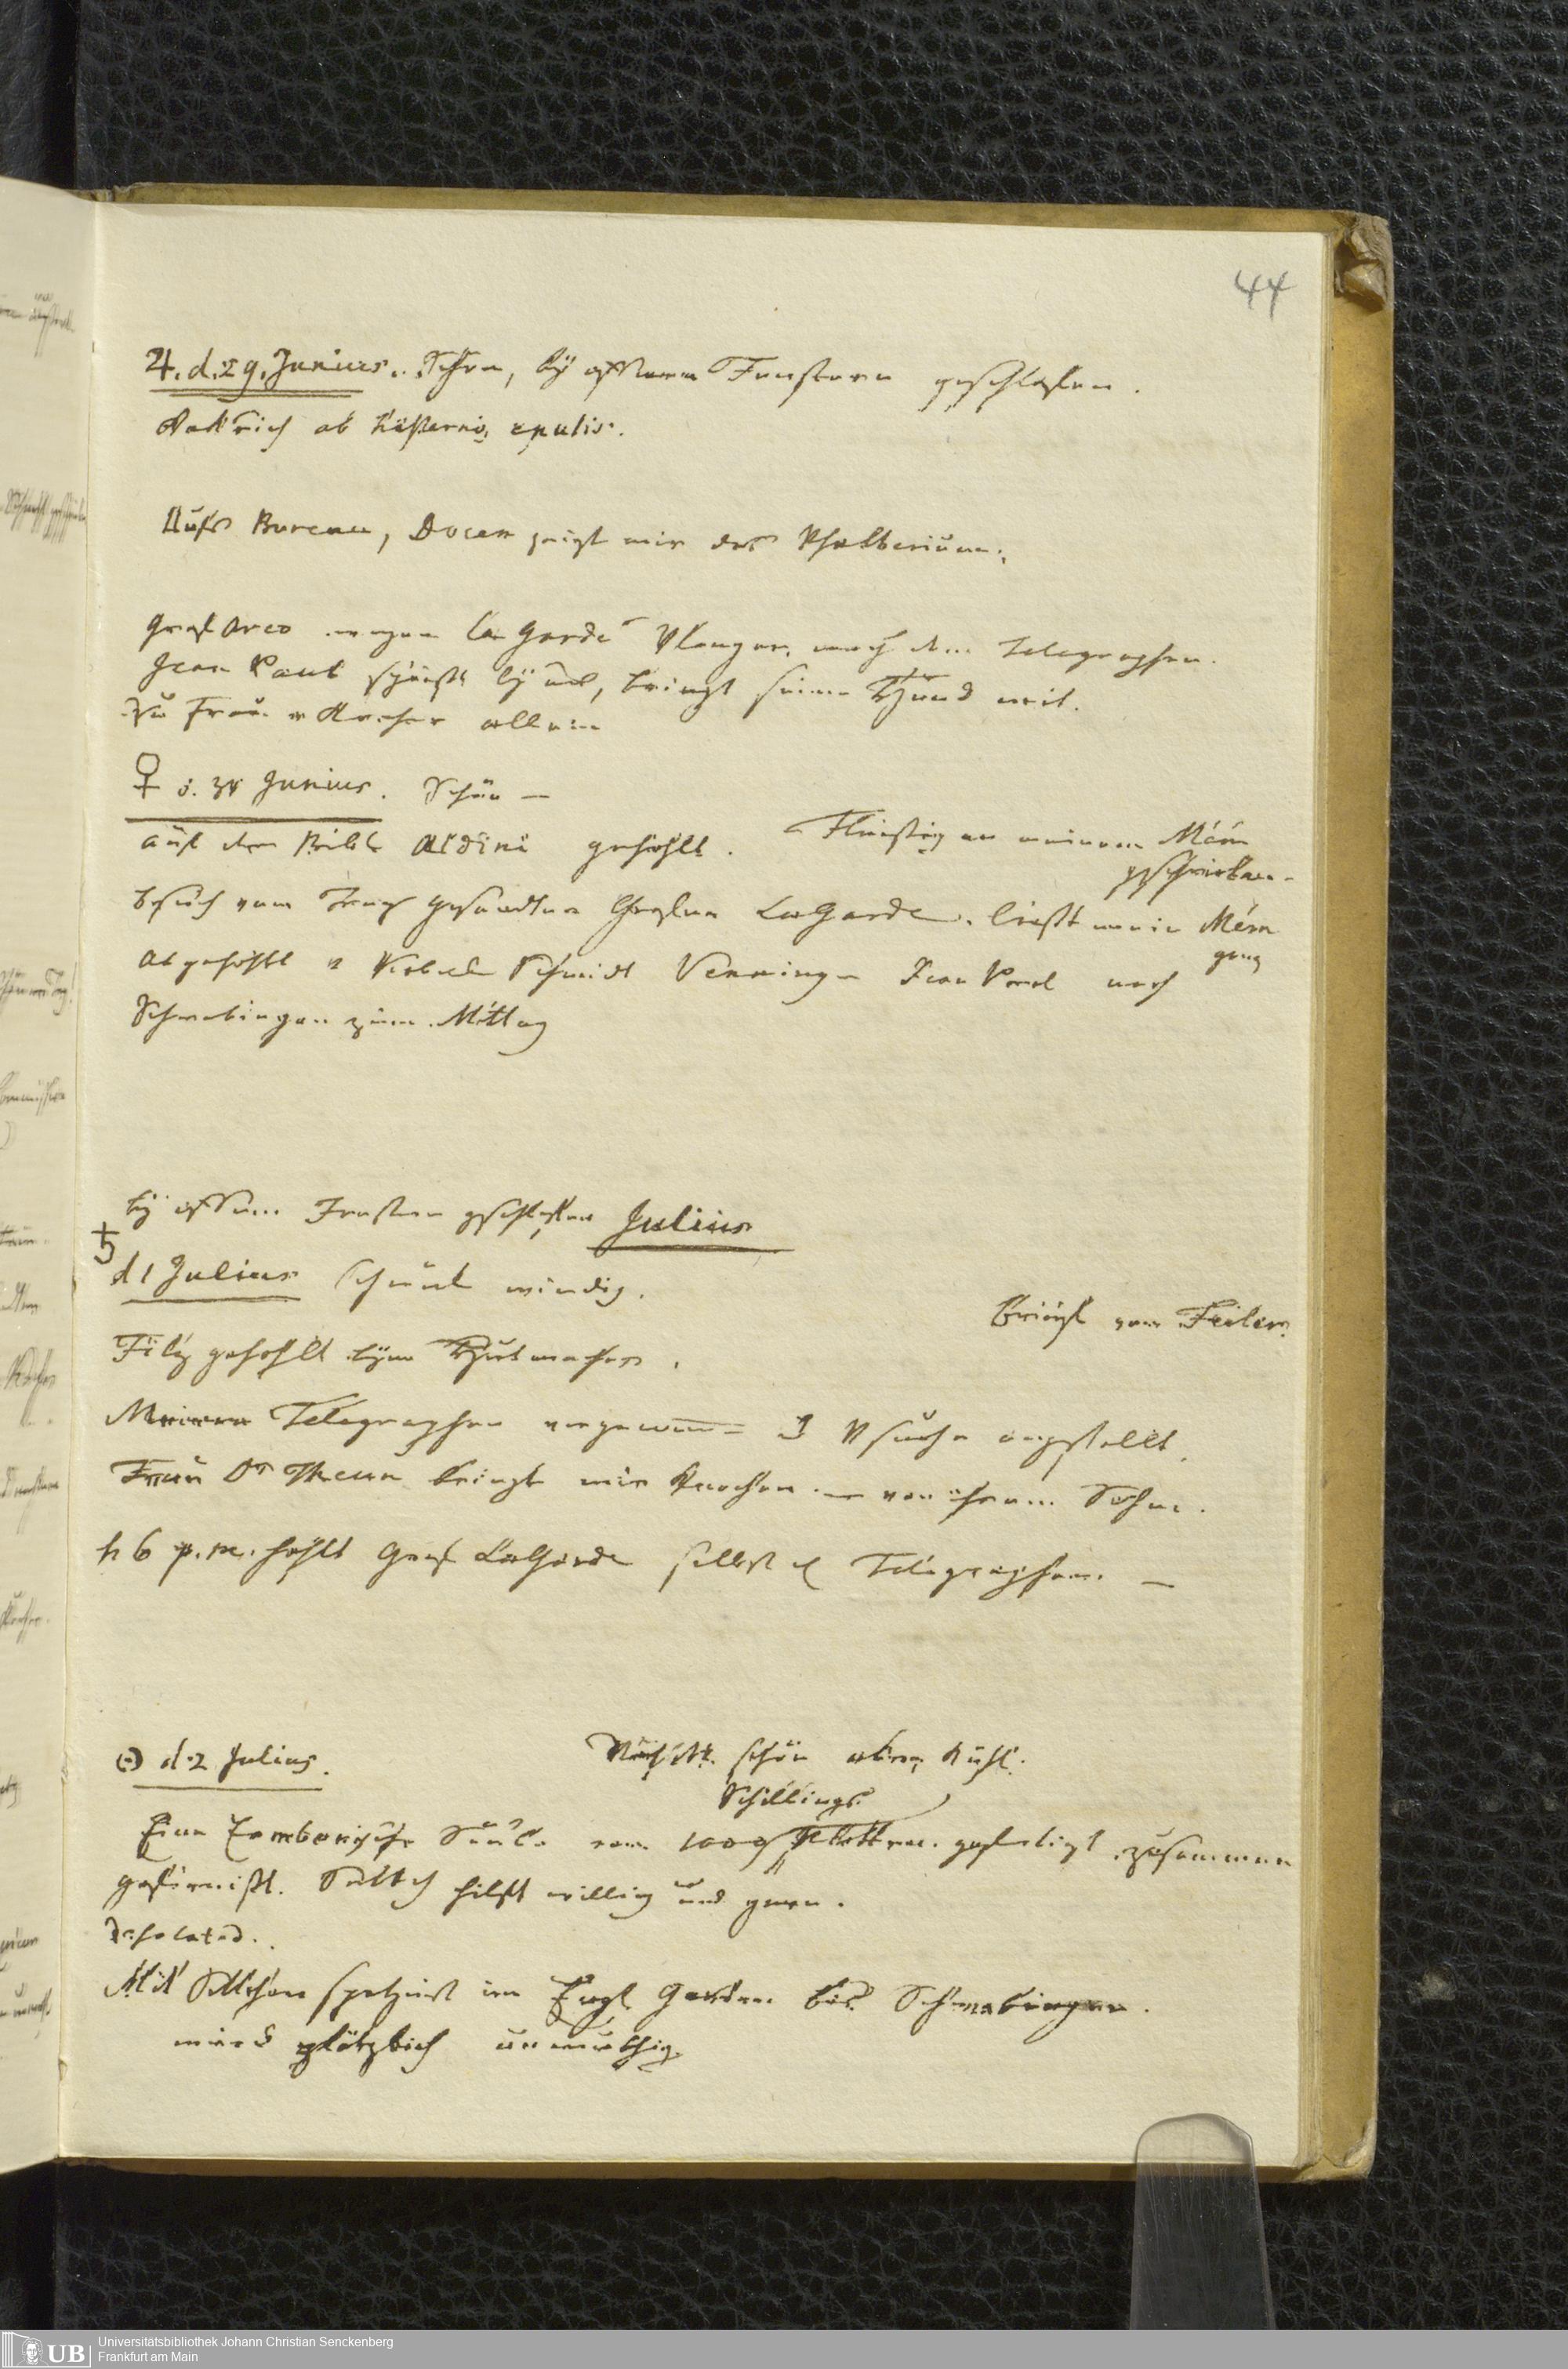 44
♃. d. 29. Junius. Schön, by offenen Fenstern geschlafen.
ab hesternis epulis.
Aufs Bureau, Docen zeigt mir das Psalterium.
Graf Arco wegen La Garde nach dem Telegraphen.
Jean Paul speist by uns, bringt seinen Hund mit.
Zu Frau v allein
♀ d. 30 Junius. Schön —
auf der Bibl Aldini gehohlt. Fleissig an meinem Mém
geschrieben.
Besuch vom Franz Gesandten Grafen LaGarde. liest mein Mém
ganz
Abgehohlt v Schmidt Jean Paul nach
Schwabingen zum Mittag
by offenen Fenstern geschlafen Julius
♄
d 1 Julius schwül windig.
Brief von Feiler.
Filz gehohlt bym Hutmacher.
Meinen Telegraphen vorgenommen & Vsuche angestellt.
Frau Dr Thenn bringt mir Knochen von ihrem Sohn.
h 6 p. m. hohlt Graf LaGarde selbst d Telegraphen. —
☉ d. 2 Julius.
Nachts schön aber kühl.
Schillings
Eine Zambonische Säule von 1000 Platten. gefertigt zusammen
gefirnisst. hilft willig und gern.
Mit Söltlchen spatziert im Engl. Garten bis Schwabingen.
wird plötzlich unmuthig.
Universitätsbibliothek Johann Christian Senckenberg
Frankfurt am Main
UB